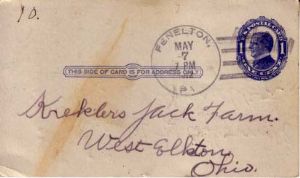 10.
FENELTON,
MAY
7
1 PM
PA
U.S. POSTAL CARD
1 1
THIS SIDE OF CARD IS FOR ADDRESS ONLY
Kreklers Jack Farm.
West Elkton
Ohio.